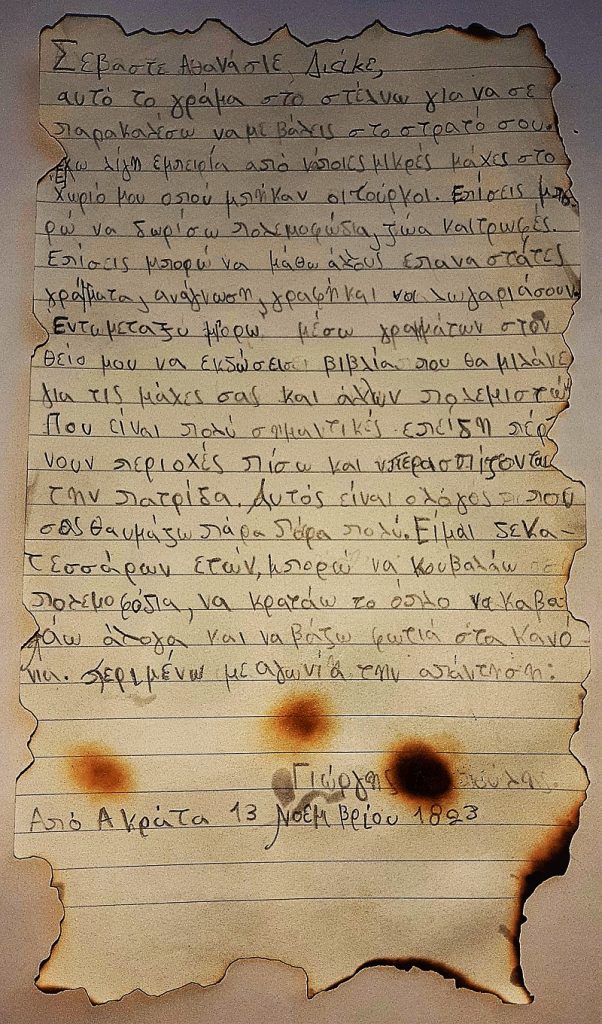 Σεβαστέ Αθανάσιε Διάκε,
αυτό το γράμα στο στέλνω για να σε
παρακαλέσω να με βάλεις στο στρατό σου.
Έχω λίγη εμπειρία από κάποιες μικρές μάχες στο
χωριό μου οπού μπήκαν οι τούρκοι. Επίσεις μπο-
ρώ να δωρίσω πολεμοφώδια, ζώα και τρωφές.
Επίσεις μπορώ να μάθω άλους επαναστάτες
γράμματα, ανάγνωση, γραφή και να λωγαριάσουν.
Εντωμεταξυ μπορω μέσω γραμμάτων στον
θείο μου να εκδώσει βιβλία που θα μιλάνε
για τις μάχες σας και άλλων πολεμιστών
Που είναι πολύ σημαντικές επείδη πέρ
νουν περιοχές πίσω και υπερασπίζονται
την πατρίδα. Αυτός είναι ο λόγος που
σας θαυμάζω πάρα Πάρα πολύ. Είμαι δεκα-
τεσσάρων ετών, μπορώ να κουβαλάω
πολεμοφόδια, να κρατάω το όπλο να καβα
λάω άλογα και να βάζω φωτιά στα κανό
νια. περιμένω με αγωνία την απάντηση:
Γιώργης
Από Ακράτα 13 Νοεμβρίου 1823